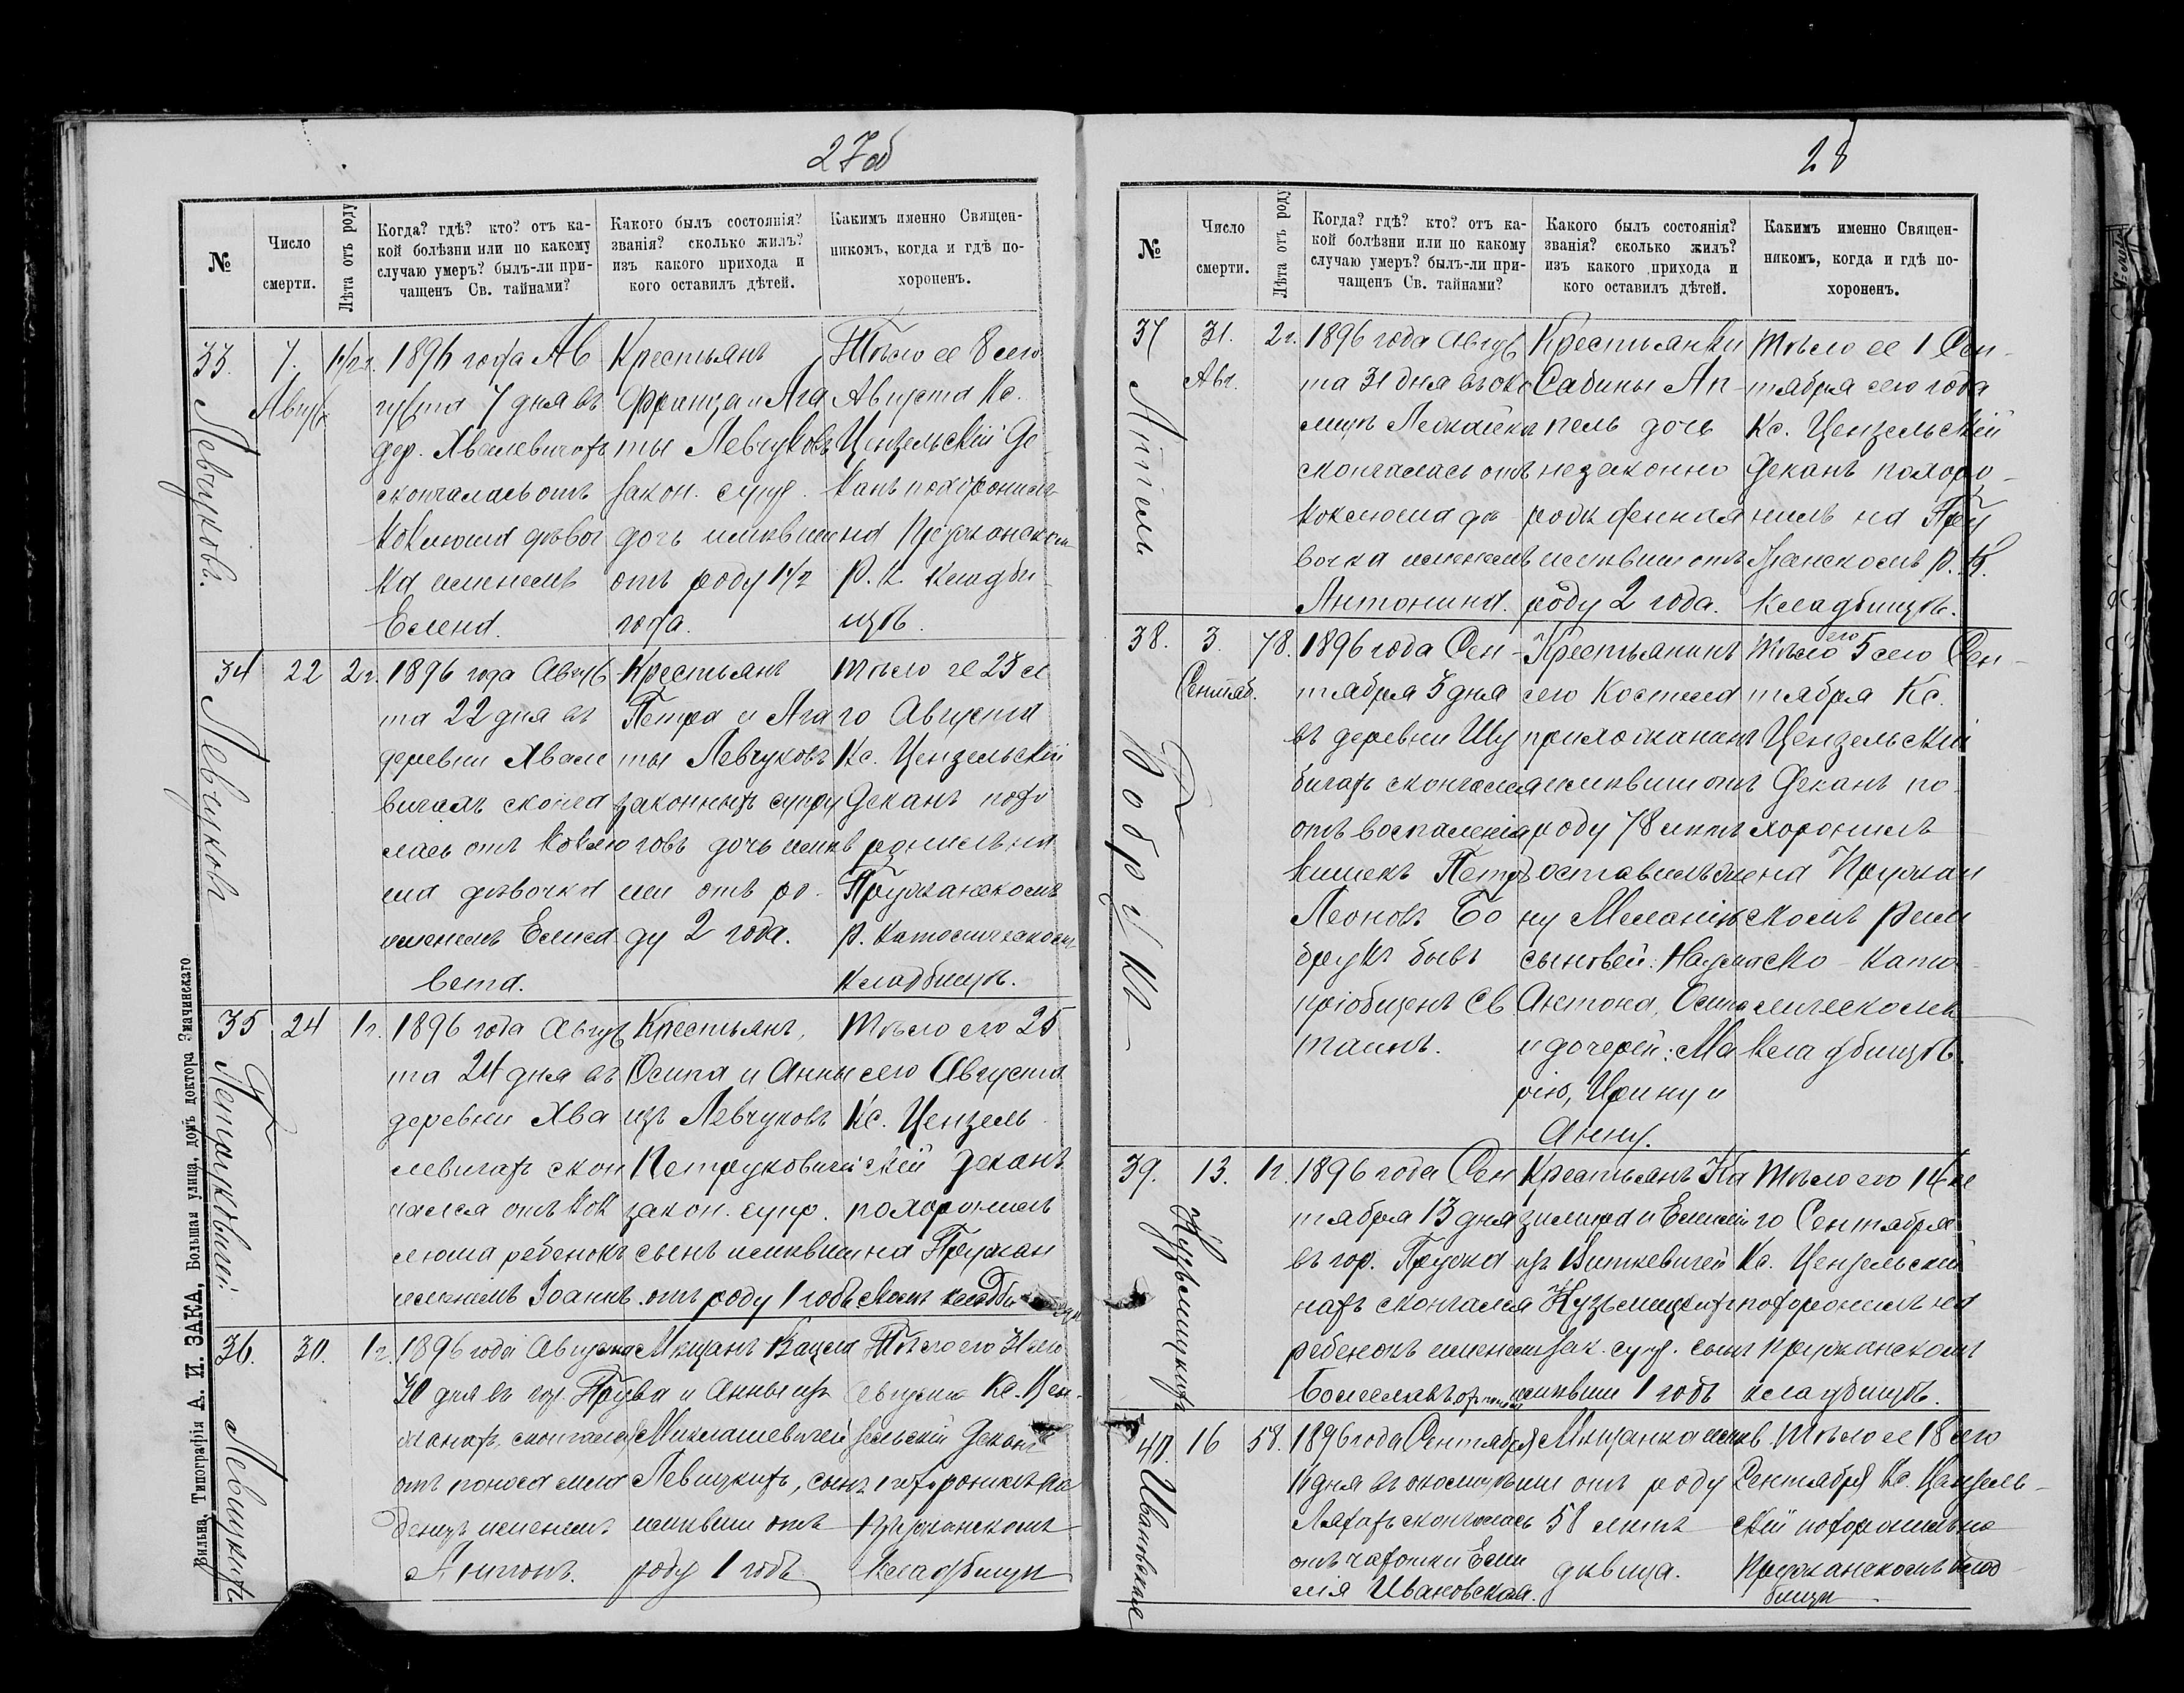 27об
№
Число
смерти.
Лѣта отъ роду
Когда? гдѣ? кто? отъ ка-
кой болѣзни или по какому
случаю умеръ? былъ-ли при-
чащенъ Св. тайнами?
Какого былъ состоянія?
званія? сколько жилъ?
изъ какого прихода и
кого оставилъ дѣтей.
Какимъ именно Священ-
никомъ, когда и гдѣ по-
хороненъ.
33.
7.
Август
1 1/2 г.
Левчуковъ.
1896 года Ав
густа 7 дня въ
дер. Хвалевичахъ
скончалась отъ
коклюша дѣвоч
ка именемъ
Елена.
Крестьянъ
Франца и Ага
ты Левчуковъ
закон. супр.
дочь имѣвшая
отъ роду 1 1/2
года.
Тѣло ее 8 сего
Августа Кс.
Цензельскій Де
канъ похоронилъ
на Пружанскомъ
Р. К. кладби
щѣ.
34
22
2 г.
Левчуковъ
1896 года Авгус
та 22 дня въ
деревни Хвале
вичахъ сконча
лась отъ коклю
ша дѣвочка
именемъ Елиса
вета.
Крестьянъ
Петра и Ага
ты Левчуковъ
законныхъ супру
говъ дочь имѣв
шая отъ ро-
ду 2 года.
Тѣло ее 23 се
го Августа
Кс. Цензельскій
Деканъ похо
ронилъ на
Пружанскомъ
Р. Католическомъ
кладбищѣ.
35
24
1 г.
Петруковичей
1896 года Авгус
та 24 дня въ
деревни Хва
левичахъ скон
чался отъ кок
люша ребенокъ
именемъ Іоаннъ.
Крестьянъ,
Осипа и Анны
изъ Левчуковъ
Петруковичей
закон. супр.
сынъ имѣвши
отъ роду 1 годъ
Тѣло его 25
сего Августа
Кс. Цензель
скій Деканъ
похоронилъ
на Пружан
скомъ кладби
щѣ
36.
30.
1 г.
Левицкихъ
1896 года Августа
30 дня въ гор. Пру
жанахъ скончался
отъ поноса мла
денецъ именемъ
Антонъ.
Мѣщанъ Вацла
ва и Анны изъ
Миклашевичей
Левицкихъ, сынъ
имѣвши отъ
роду 1 годъ
Тѣло его 31 сего
Августа Кс. Цен-
зельскій Деканъ
похоронилъ на
Пружанскомъ
кладбищѣ
Вильна, Типографія А. И. ЗАКА, Большая улица, домъ доктора Значинскаго
28
№
Число
смерти.
Лѣта отъ роду
Когда? гдѣ? кто? отъ ка-
кой болѣзни или по какому
случаю умеръ? былъ-ли при-
чащенъ Св. тайнами?
Какого былъ состоянія?
званія? сколько жилъ?
изъ какого прихода и
кого оставилъ дѣтей.
Какимъ именно Священ-
никомъ, когда и гдѣ по-
хороненъ.
37
31.
Авг.
2 г.
Аппель
1896 года Авгус
та 31 дня въ око
скончалась отъ
коклюша дѣ
вочка именемъ
Антонина.
Крестьянки
Сабины Ап-
пель дочь
незаконно
рожденная
имѣвши отъ
роду 2 года.
Тѣло ее 1 Сен-
тября сего года
Кс. Цензельскій
Деканъ похоро-
нилъ на Пру
жанскомъ Р. К.
кладбищѣ.
38.
3.
Сентяб.
78.
Бобрукъ
1896 года Сен-
тября 3 дня
въ деревни Шу
бичахъ скончался
отъ воспаленія
кишекъ Петръ
Леоновъ Бо
брукъ бывъ
пріобщенъ Св
таинъ.
Крестьянинъ
сего Костела
прихожанинъ
имѣвши отъ
роду 78 лѣтъ
оставилъ же
ну Меланію
сыновей: Наума
Антона, Осипа
и дочерей: Ма
рію, Ирину и
Анну.
Тѣло его 5 сего Сен-
тября Кс.
Цензельскій
Деканъ по-
хоронилъ
на Пружан
скомъ Рим
ско-като-
лическомъ
кладбищѣ.
39.
13.
1 г.
Кузьмицкихъ
1896 года Сен
тября 13 дня
въ гор. Пружа
нахъ скончался
ребенокъ именемъ
Болеславъ
Крестьянъ Ка
зимира и Емиліи
изъ Виткевичей
Кузьмицкихъ
зак. супр. сынъ
имѣвши 1 годъ
Тѣло его 14 се
го Сентября
Кс. Цензельскій
похоронилъ на
Пружанскомъ
кладбищѣ.
40.
16
58.
Ивановская
1896 года Сентября
16 дня въ околицѣ
Ляхахъ скончалась
отъ чахотки Еми
лія Ивановская.
Мѣщанка имѣв
ши отъ роду
58 лѣтъ
дѣвица.
Тѣло ее 18 сего
Сентября Кс. Цензель-
скій похоронилъ на
Пружанскомъ клад
бищѣ